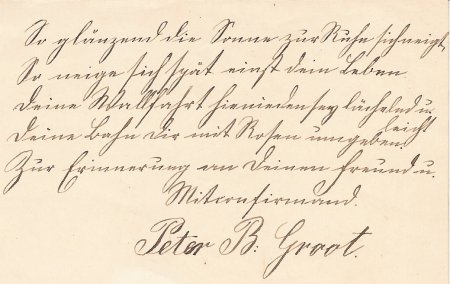 So glänzend die Sonne zur Ruhe sich neigt,
So neige sich spät einst dein Leben
Deine Wallfahrt hienieden sey lächelnd u. leicht
Deine Bahn dir mit Rosen umgeben.
Zur Erinnerung an Deinen Freund u.
Mitconfirmand.
Peter B. Groot.